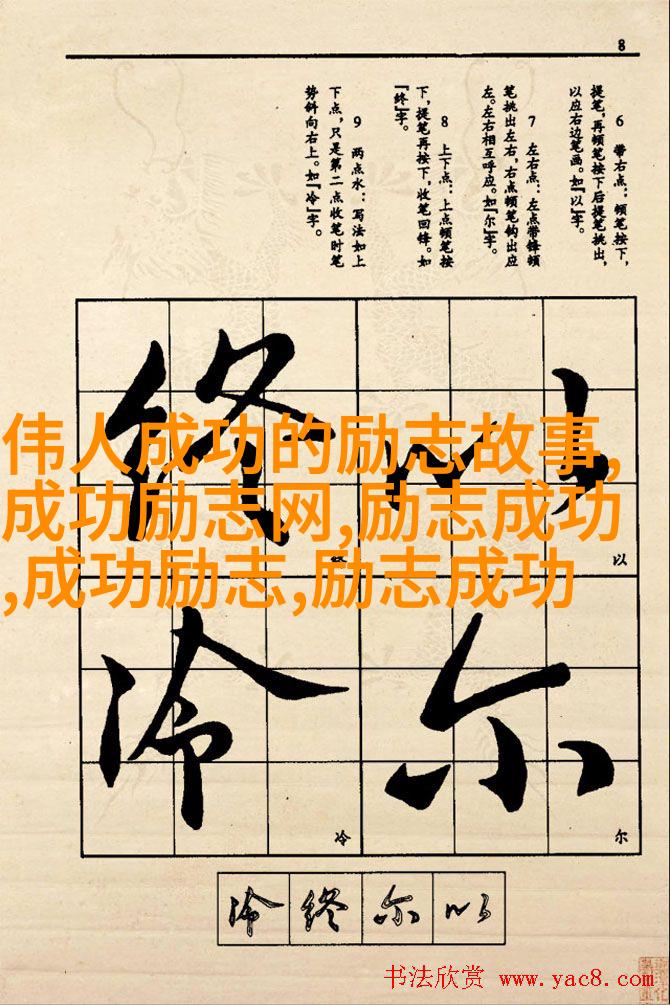 8
6 带右点：顿笔按下，
提笔，再顿笔按下后提笔挑出，
以应右边笔画。如“以”字。
7 左右点：左点带锋顿
笔挑出左右，右点顿笔钩出应
左。左右相互呼应。如“尔”字。
8 上下点：上点顿笔按
下，提笔再按下，收笔回锋。如
“终”字。
9 两点水：写法如上
下点，只是第二点收笔时笔
势斜向右上。如“冷”字。
终 以
伟人成功的励志故事,
成功励志网,励志成功
,成功励志,励志成功
终 以
冷 尔
冷 尔
冷 终 尔 以
书法欣赏 www.yac8.com